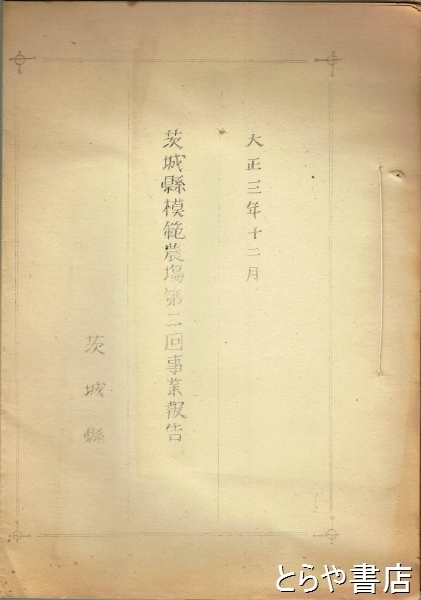 大正三年十二月
茨城縣模範農場第二回事業報告
茨城縣
とらや書店